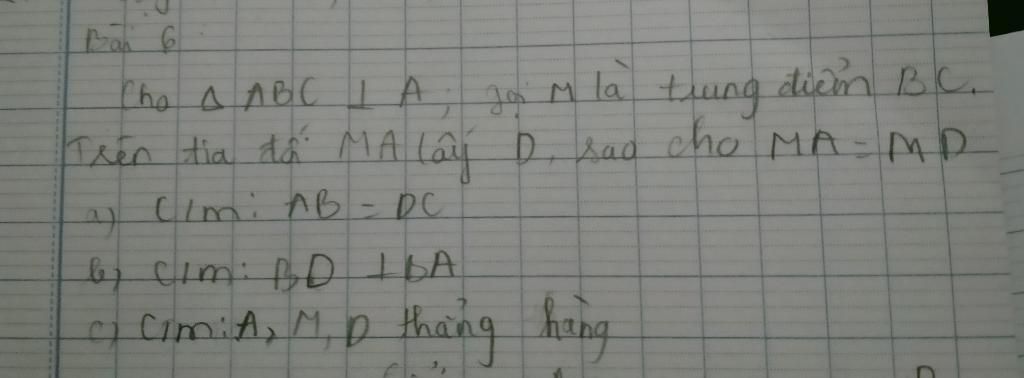 Bài 6
Cho Δ ABC ⊥ A, gọi M là trung điểm BC.
Trên tia đối MA lấy D, sao cho MA = MD
a) C/m: AB = DC
b) C/m: BD ⊥ bA
c) C/m: A, M, D thẳng hàng